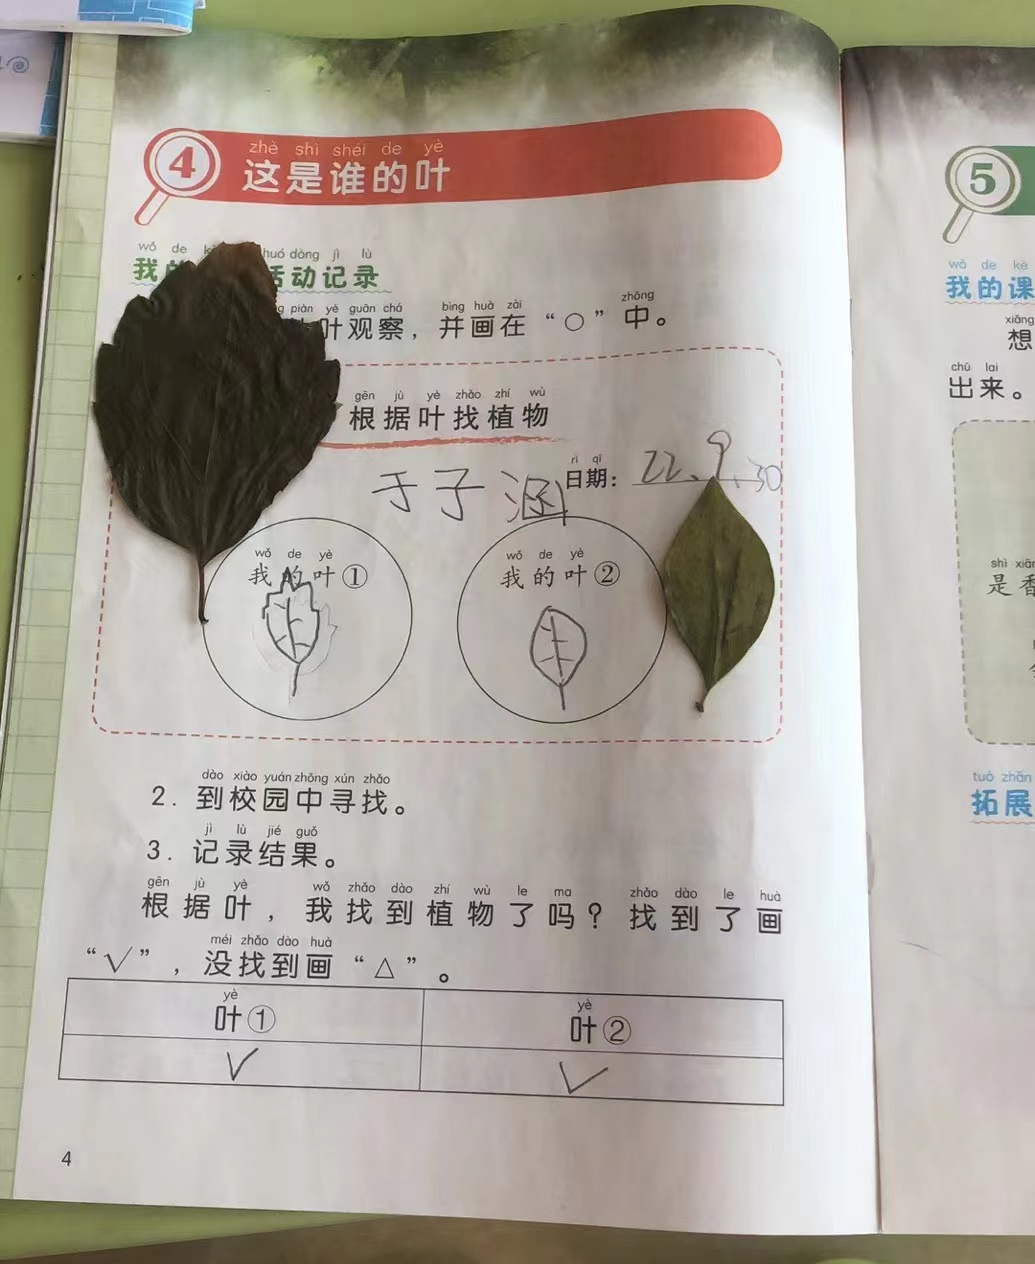 zhè shì shéi de yè
4 这是谁的叶
wǒ de huó dòng jì lù
我的 活动记录
piàn yè guān chá bìng huà zài zhōng
叶观察，并画在“○”中。
gēn jù yè zhǎo zhí wù
根据叶找植物
rì qī
于子涵 日期：22.9.30
wǒ de yè wǒ de yè
我的叶① 我的叶②
dào xiào yuán zhōng xún zhǎo
2. 到校园中寻找。
jì lù jié guǒ
3. 记录结果。
gēn jù yè wǒ zhǎo dào zhí wù le ma zhǎo dào le huà
根据叶，我找到植物了吗？找到了画
méi zhǎo dào huà
“√”，没找到画“△”。
yè yè
叶① 叶②
√ √
4
5
wǒ de kè
我的课
xiǎng
想
chū lai
出来。
shì xiāng
是香
tuò zhǎn
拓展